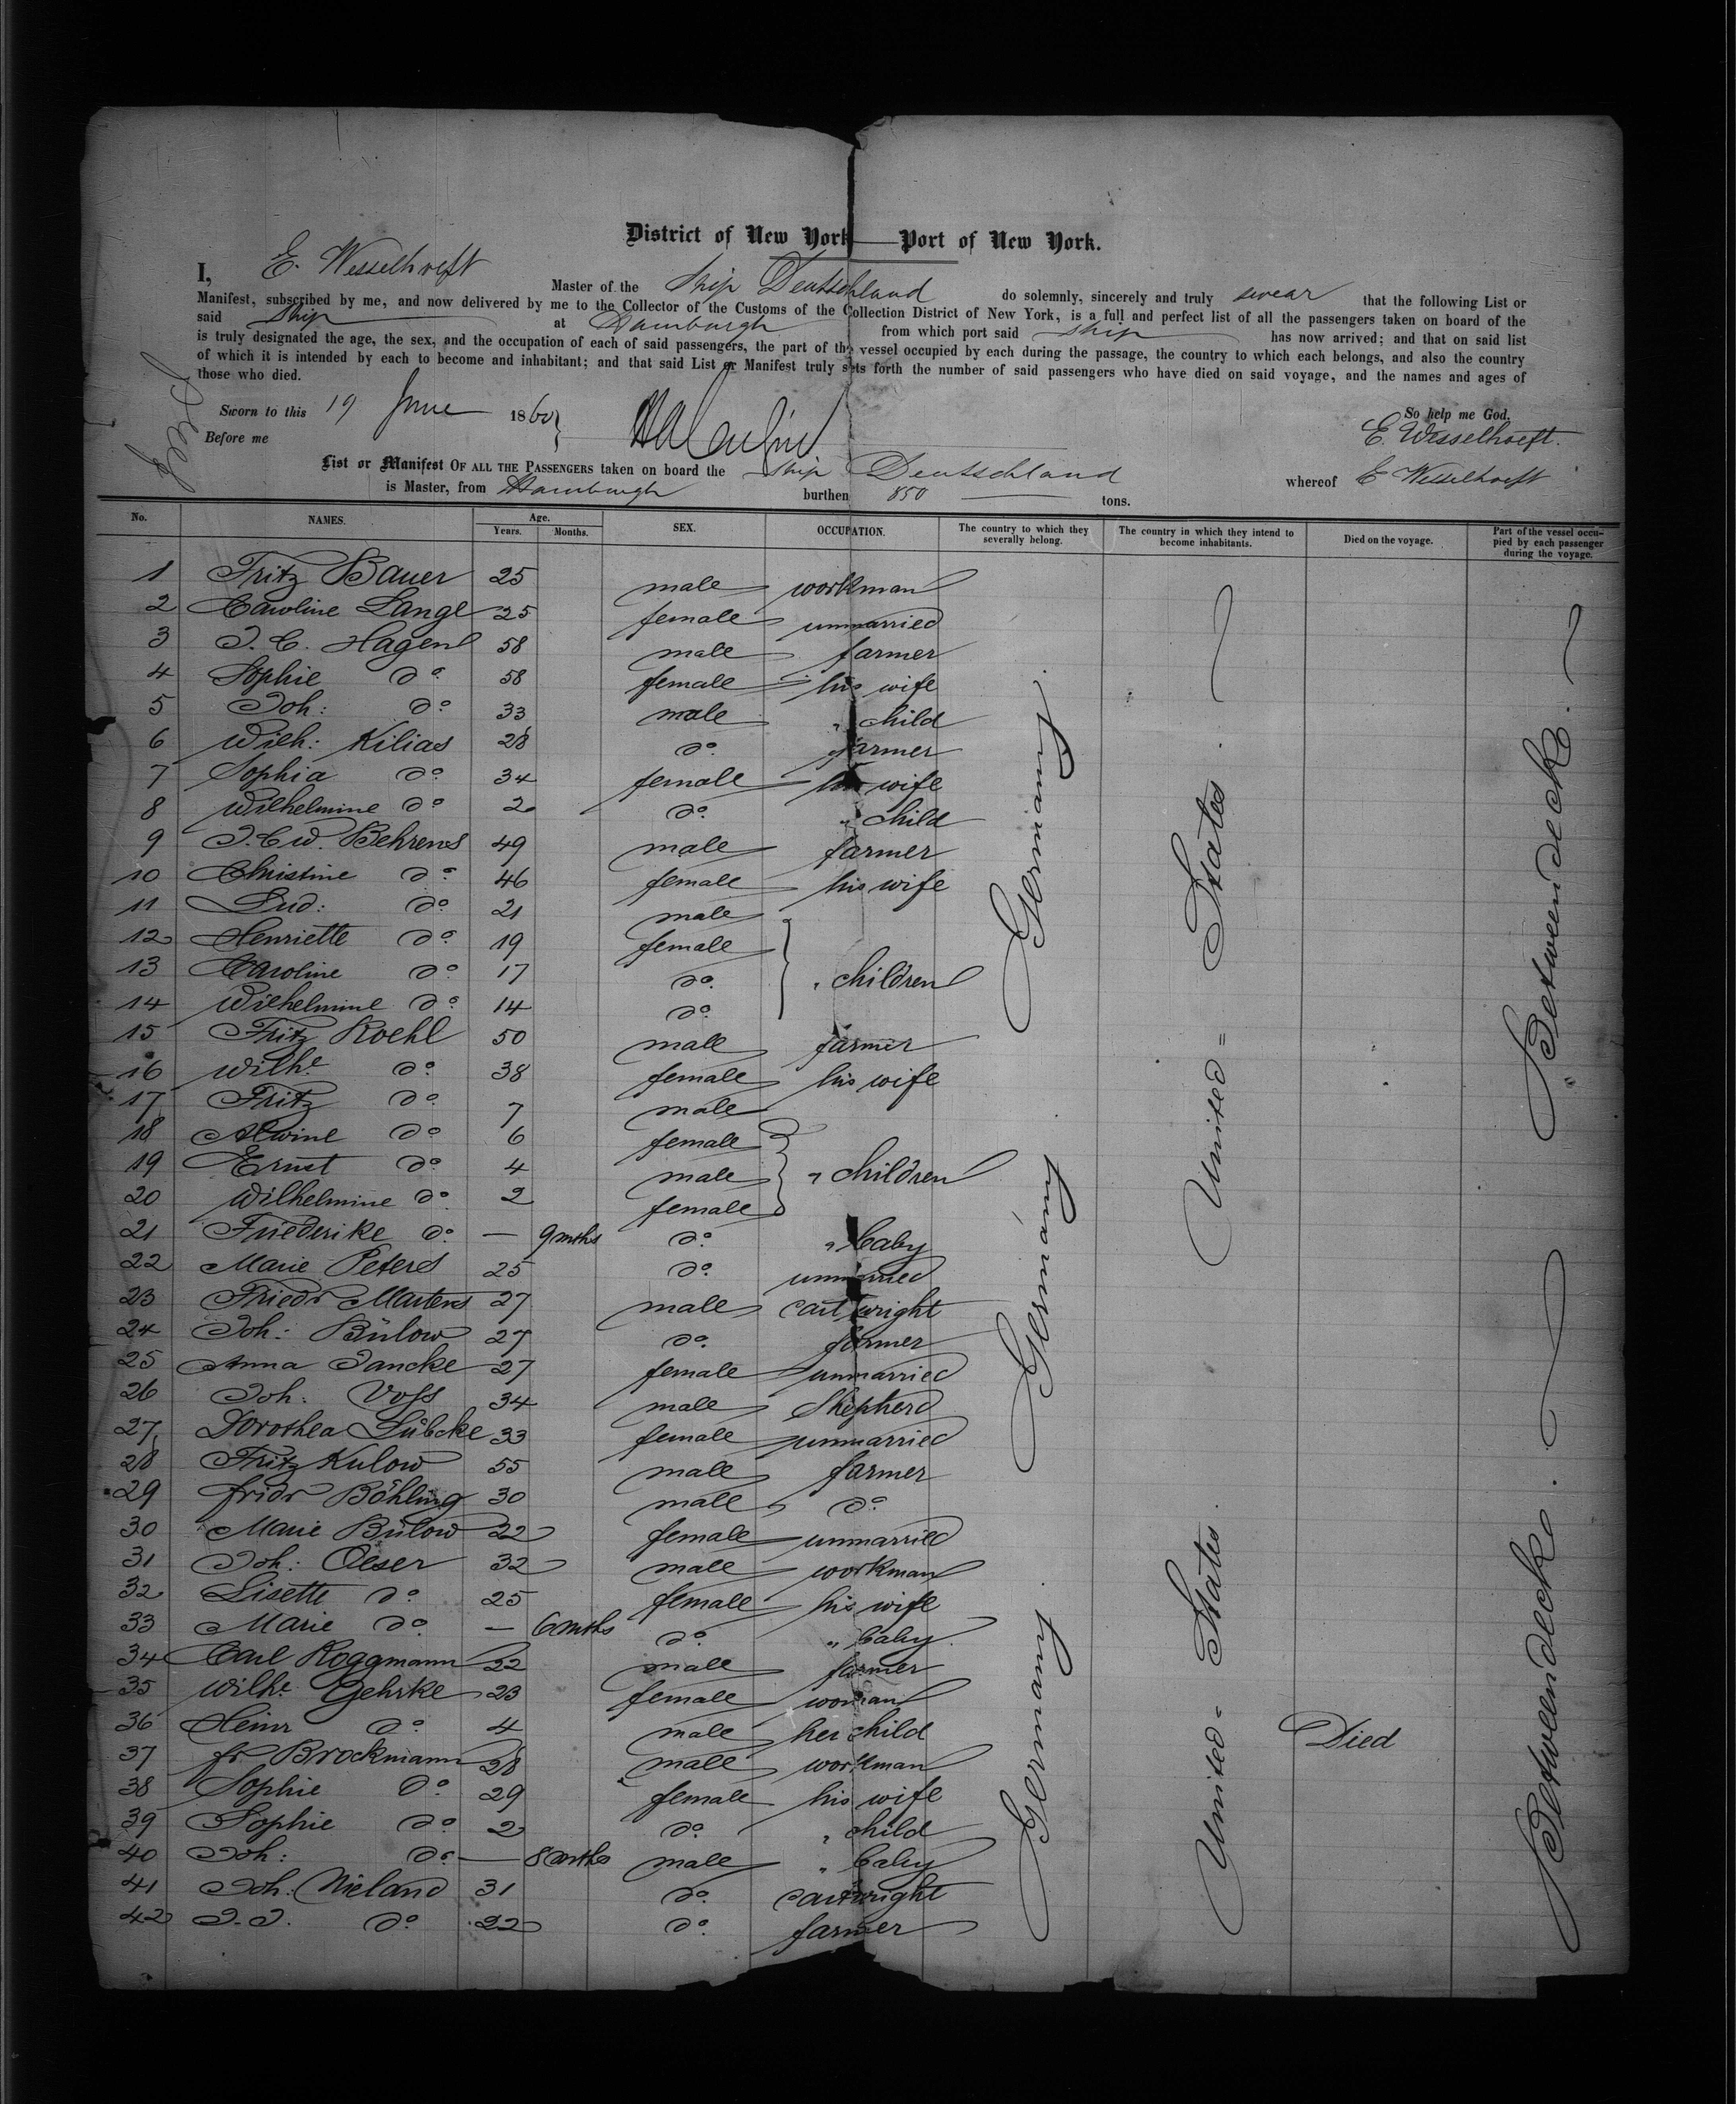 District of New York — Port of New York.
I, E. Wesselhoeft Master of the Ship Deutschland do solemnly, sincerely and truly swear that the following List or
Manifest, subscribed by me, and now delivered by me to the Collector of the Customs of the Collection District of New York, is a full and perfect list of all the passengers taken on board of the
said Ship at Hamburgh from which port said ship has now arrived; and that on said list
is truly designated the age, the sex, and the occupation of each of said passengers, the part of the vessel occupied by each during the passage, the country to which each belongs, and also the country
of which it is intended by each to become and inhabitant; and that said List or Manifest truly sets forth the number of said passengers who have died on said voyage, and the names and ages of
those who died.
Sworn to this 19 June 1860 So help me God.
Before me E. Wesselhoeft.
List or Manifest OF ALL THE PASSENGERS taken on board the Ship Deutschland whereof E Wesselhoeft
is Master, from Hamburgh burthen 850 tons.
No. NAMES. Age. Years. Months. SEX. OCCUPATION. The country to which they severally belong. The country in which they intend to become inhabitants. Died on the voyage. Part of the vessel occu-pied by each passenger during the voyage.
1 Fritz Bauer 25 male workman
2 Caroline Lange 25 female unmarried
3 J. C. Hagen 58 male farmer
4 Sophie do 58 female his wife
5 Joh: do 33 male " child
6 Wilh: Kilias 28 do farmer
7 Sophia do 34 female his wife
8 Wilhelmine do 2 do " child
9 J. C. W. Behrens 49 male farmer
10 Christine do 46 female his wife
11 Lud: do 21 male
12 Henriette do 19 female
13 Caroline do 17 do " children
14 Wilhelmine do 14 do
15 Fritz Koehl 50 male farmer
16 Wilhe do 38 female his wife
17 Fritz do 7 male
18 Alwine do 6 female
19 Ernst do 4 male " children
20 Wilhelmine do 2 female
21 Friederike do — 9 mths do " baby
22 Marie Peters 25 do unmarried
23 Friedr Martens 27 male cartwright
24 Joh: Bülow 27 do farmer
25 Anna Jancke 27 female unmarried
26 Joh: Voss 34 male Shepherd
27 Dorothea Lübcke 33 female unmarried
28 Fritz Kulow 55 male farmer
29 fridr Böhling 30 male do
30 Marie Bülow 22 female unmarried
31 Joh: Oeser 32 male workman
32 Lisette do 25 female his wife
33 Marie do — 6 mths do " baby
34 Carl Roggmann 22 male farmer
35 Wilhe Gehrke 23 female woman
36 Heinr do 4 male her child Died
37 fr Brockmann 28 male workman
38 Sophie do 29 female his wife
39 Sophie do 2 do " child
40 Joh: do — 8 mths male " baby
41 Joh: Nieland 31 do cartwright
42 J. J. do 22 do farmer
Germany.
Germany
Germany.
United = States.
United = States.
Betweendeck.
Betweendecke.